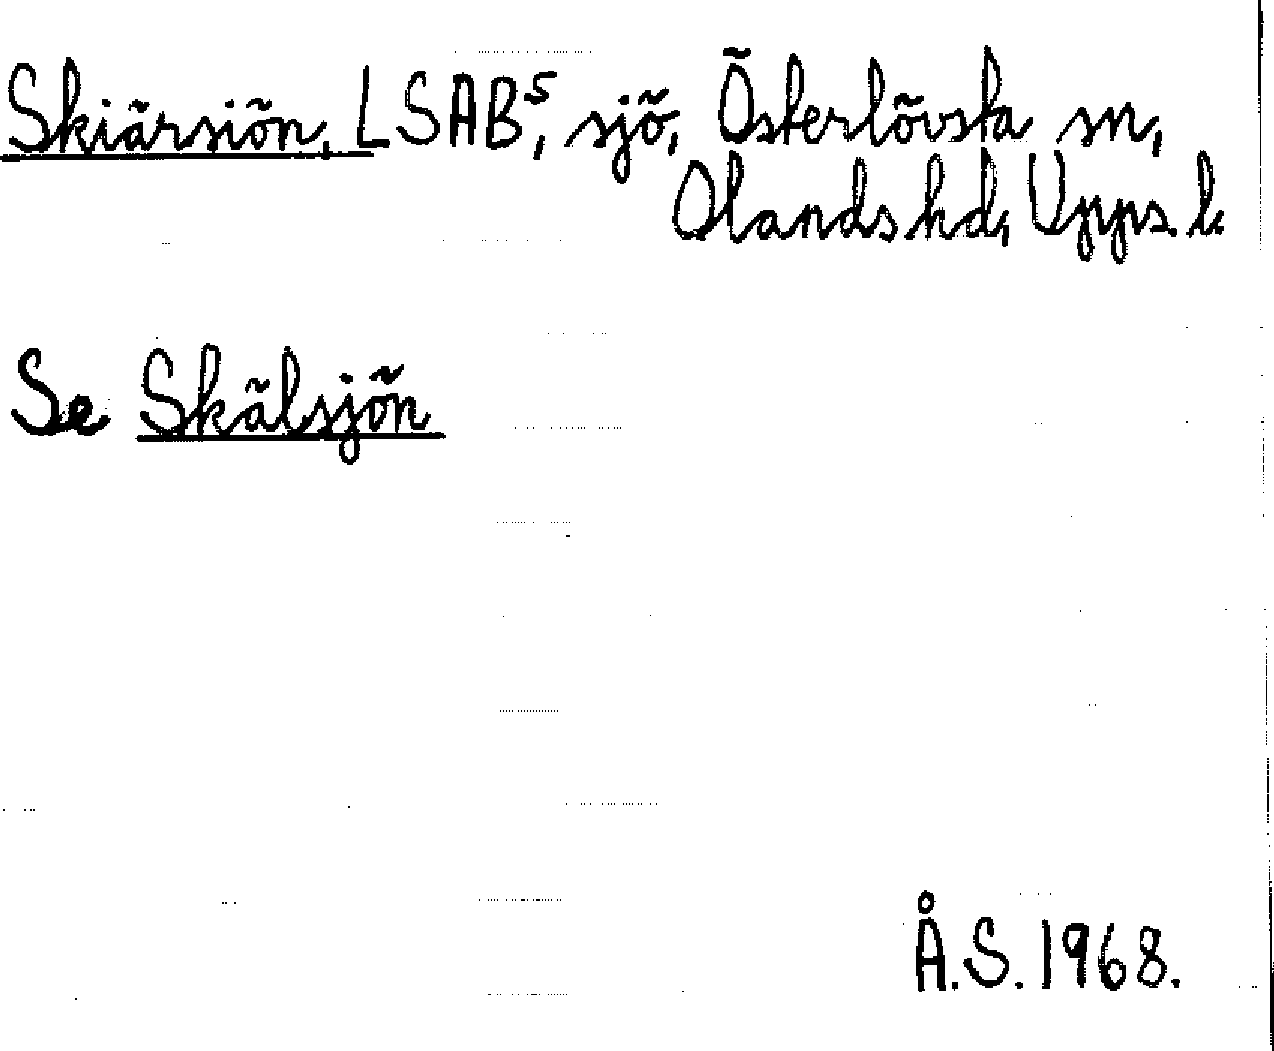 Skiärsiön, LSAB⁵, sjö, Österlövsta sn,
Olands hd, Upps. l.
Se Skälsjön
Å.S. 1968.